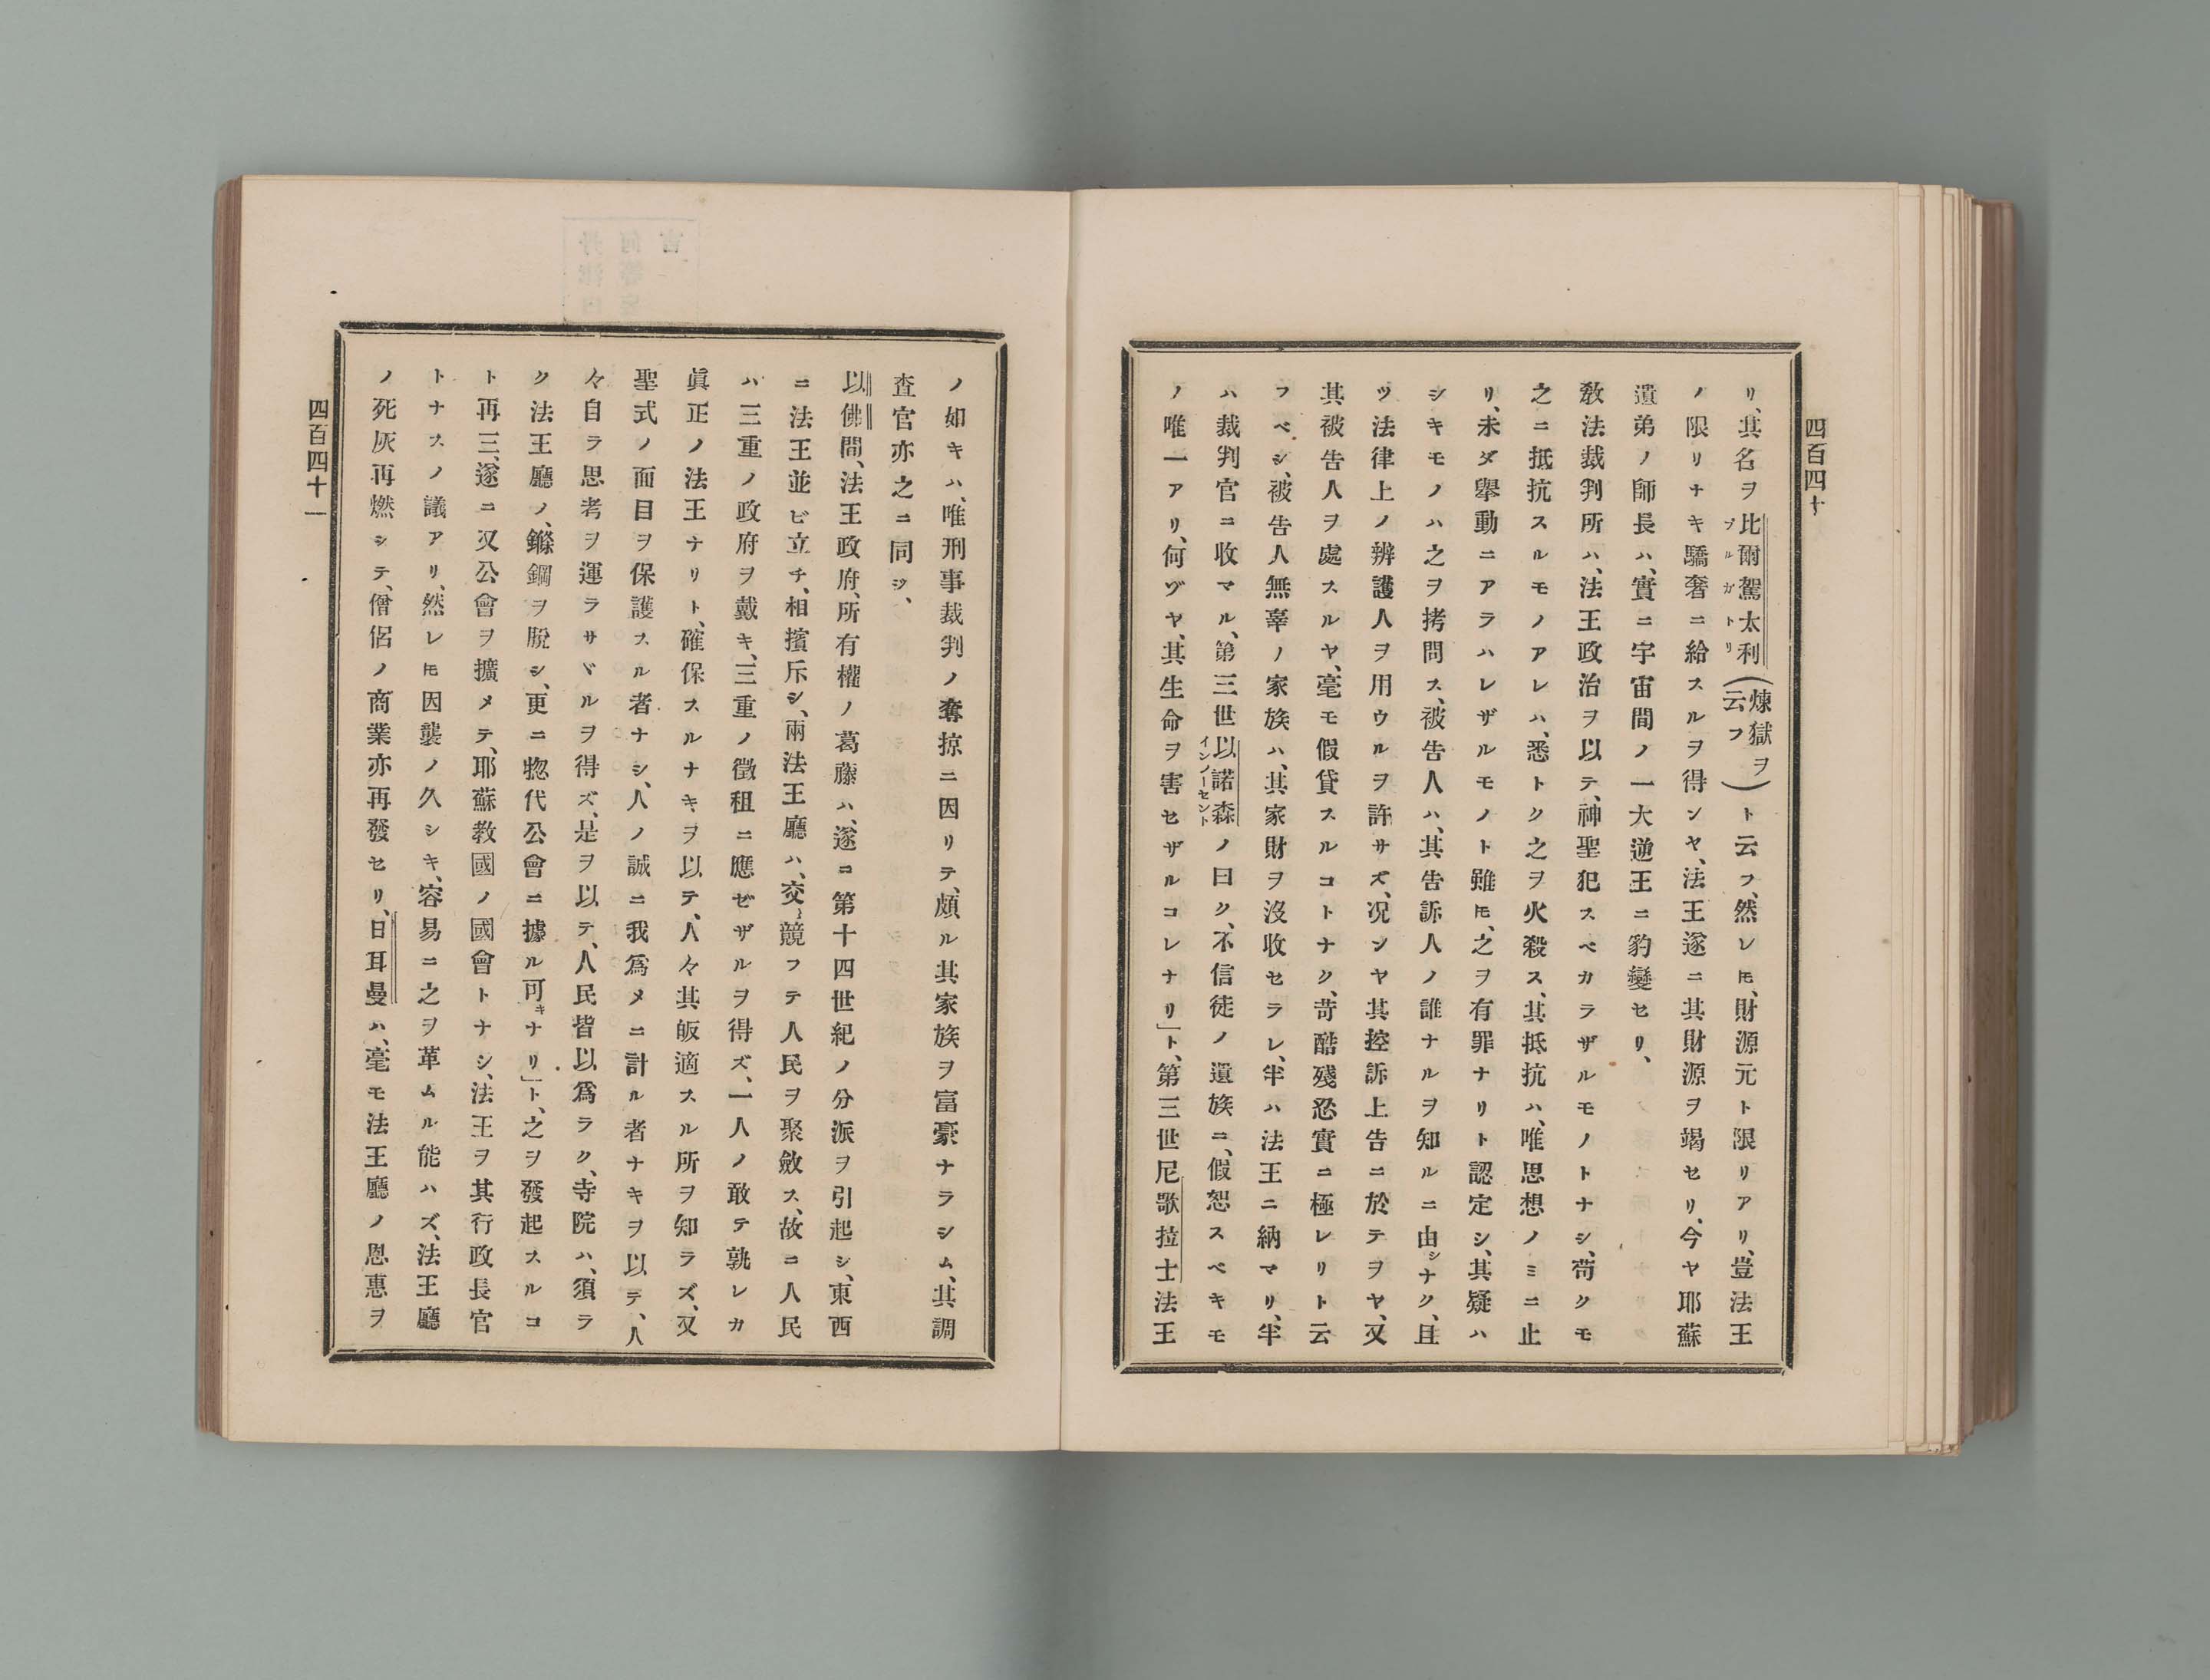 四百四十
リ、其名ヲ比爾駕太利(煉獄ヲ云フ)ト云フ、然レ𪜈、財源元ト限リアリ、豈法王
プルガトリ
ノ限リナキ驕奢ニ給スルヲ得ンヤ、法王遂ニ其財源ヲ竭セリ、今ヤ耶蘇
遺弟ノ師長ハ、實ニ宇宙間ノ一大逆王ニ豹變セリ、
敎法裁判所ハ、法王政治ヲ以テ、神聖犯スベカラザルモノトナシ、苟クモ
之ニ抵抗スルモノアレハ、悉トク之ヲ火殺ス、其抵抗ハ、唯思想ノミニ止
リ、未ダ擧動ニアラハレザルモノト雖𪜈、之ヲ有罪ナリト認定シ、其疑ハ
シキモノハ之ヲ拷問ス、被告人ハ、其告訴人ノ誰ナルヲ知ルニ由シナク、且
ツ法律上ノ辨護人ヲ用ウルヲ許サズ、况ンヤ其控訴上告ニ於テヲヤ、又
其被告人ヲ處スルヤ、毫モ假貸スルコトナク、苛酷殘忍實ニ極レリト云
フベシ、被告人無辜ノ家族ハ、其家財ヲ沒收セラレ、半ハ法王ニ納マリ、半
ハ裁判官ニ收マル、第三世以諾森ノ曰ク、不信徒ノ遺族ニ、假恕スベキモ
インノーセント
ノ唯一アリ、何ヅヤ、其生命ヲ害セザルコレナリ」ト、第三世尼歌拉士法王
ノ如キハ、唯刑事裁判ノ奪掠ニ因リテ、頗ル其家族ヲ富豪ナラシム、其調
査官亦之ニ同ジ、
以佛間、法王政府、所有權ノ葛藤ハ、遂コ第十四世紀ノ分派ヲ引起シ、東西
ニ法王並ビ立チ、相擯斥シ、兩法王廳ハ、交〻競フテ人民ヲ聚斂ス、故ニ人民
ハ三重ノ政府ヲ戴キ、三重ノ徵租ニ應ゼザルヲ得ズ、一人ノ敢テ孰レカ
眞正ノ法王ナリト、確保スルナキヲ以テ、人々其皈適スル所ヲ知ラズ、又
聖式ノ面目ヲ保護スル者ナシ、人ノ誠ニ我爲メニ計ル者ナキヲ以テ、人
々自ラ思考ヲ運ラサヾルヲ得ズ、是ヲ以テ、人民皆以爲ラク、寺院ハ、須ラ
ク法王廳ノ、鎩鋼ヲ脫シ、更ニ惣代公會ニ據ル可キナリ」ト、之ヲ發起スルコ
ト再三、遂ニ又公會ヲ擴メテ、耶蘇敎國ノ國會トナシ、法王ヲ其行政長官
トナスノ議アリ、然レ𪜈因襲ノ久シキ、容易ニ之ヲ革ムル能ハズ、法王廳
ノ死灰再燃シテ、僧侶ノ商業亦再發セリ、日耳曼ハ、毫モ法王廳ノ恩惠ヲ
四百四十一